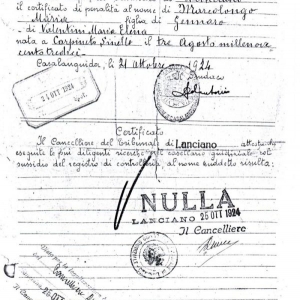 il certificato di penalità al nome di Marcolongo
Maria figlia di Gennaro
di Valentini Maria Elena
nata a Carpineto Sinello il tre Agosto millenove
cento tredici
Casalanguida, li 21 Ottobre 1924
Il Sindaco
25 OTT 1924
Certificato
Il Cancelliere del Tribunale di Lanciano attesta che
eseguite le più diligenti ricerche nel casellario giudiziale col
sussidio del registro di controllo al nome suddetto risulta:
NULLA
LANCIANO 25 OTT 1924
Il Cancelliere
Cancelliere
25 OTT